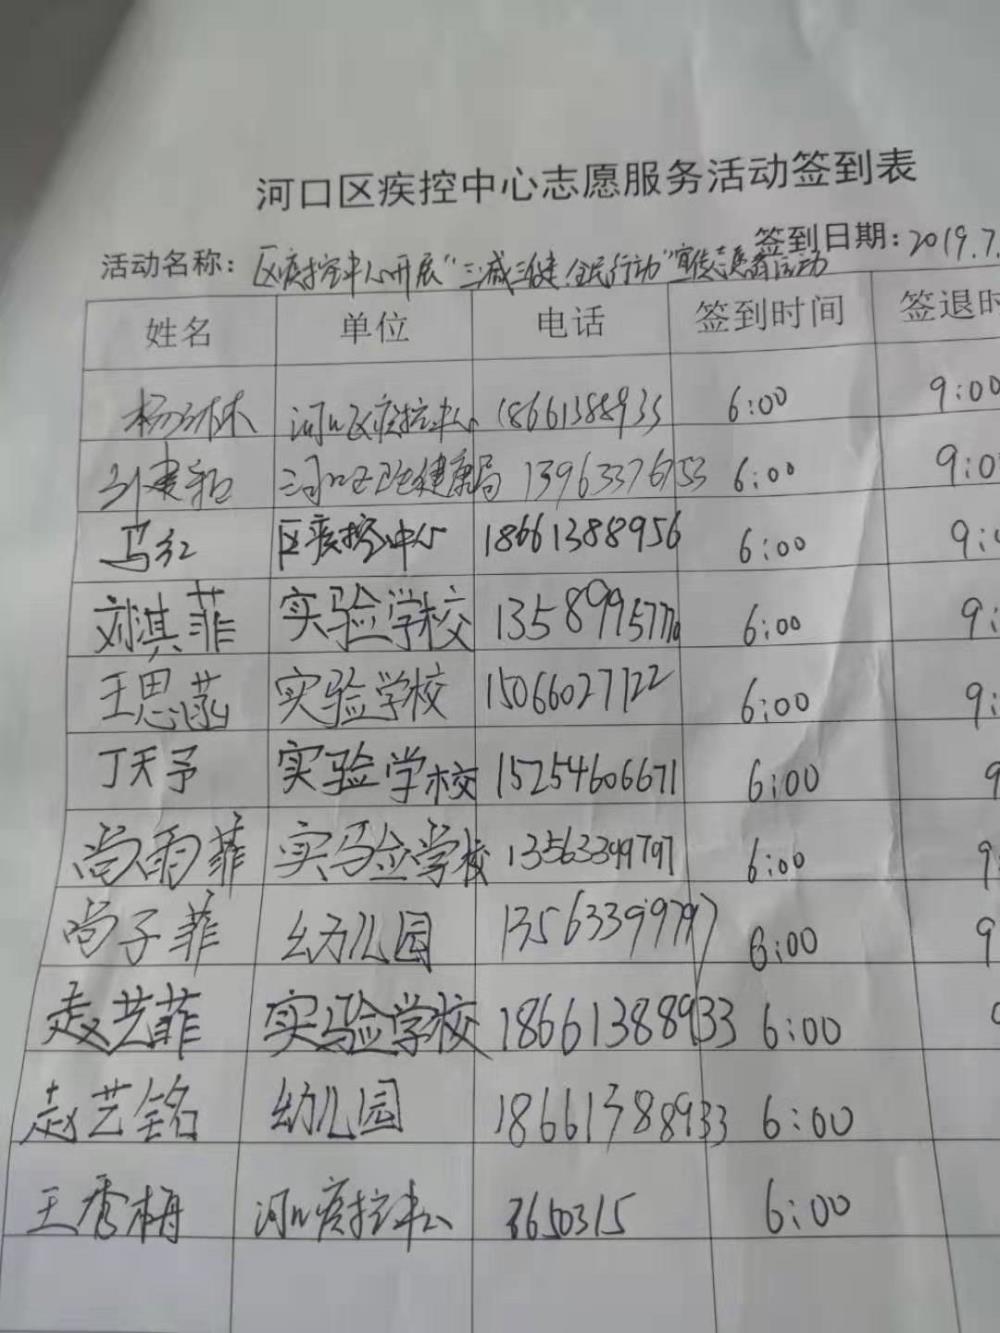 河口区疾控中心志愿服务活动签到表
签到日期：2019.7.
活动名称：区疾控中心开展“三减三健 全民行动”宣传志愿者活动
姓名 单位 电话 签到时间 签退时
杨 林 河口区疾控中心 18661388933 6:00 9:00
河口区卫生健康局 13963376753 6:00 9:0
马红 区疾控中心 18661388956 6:00 9:
刘淇菲 实验学校 6:00 9:
王思涵 实验学校 15066027122 6:00 9:
丁天予 实验学校 15254606671 6:00 9
尚雨菲 实验学校 6:00 9:
尚子菲 幼儿园 6:00 9
赵艺菲 实验学校 18661388933 6:00
赵艺铭 幼儿园 18661388933 6:00
王秀梅 河口疾控中心 3650315 6:00